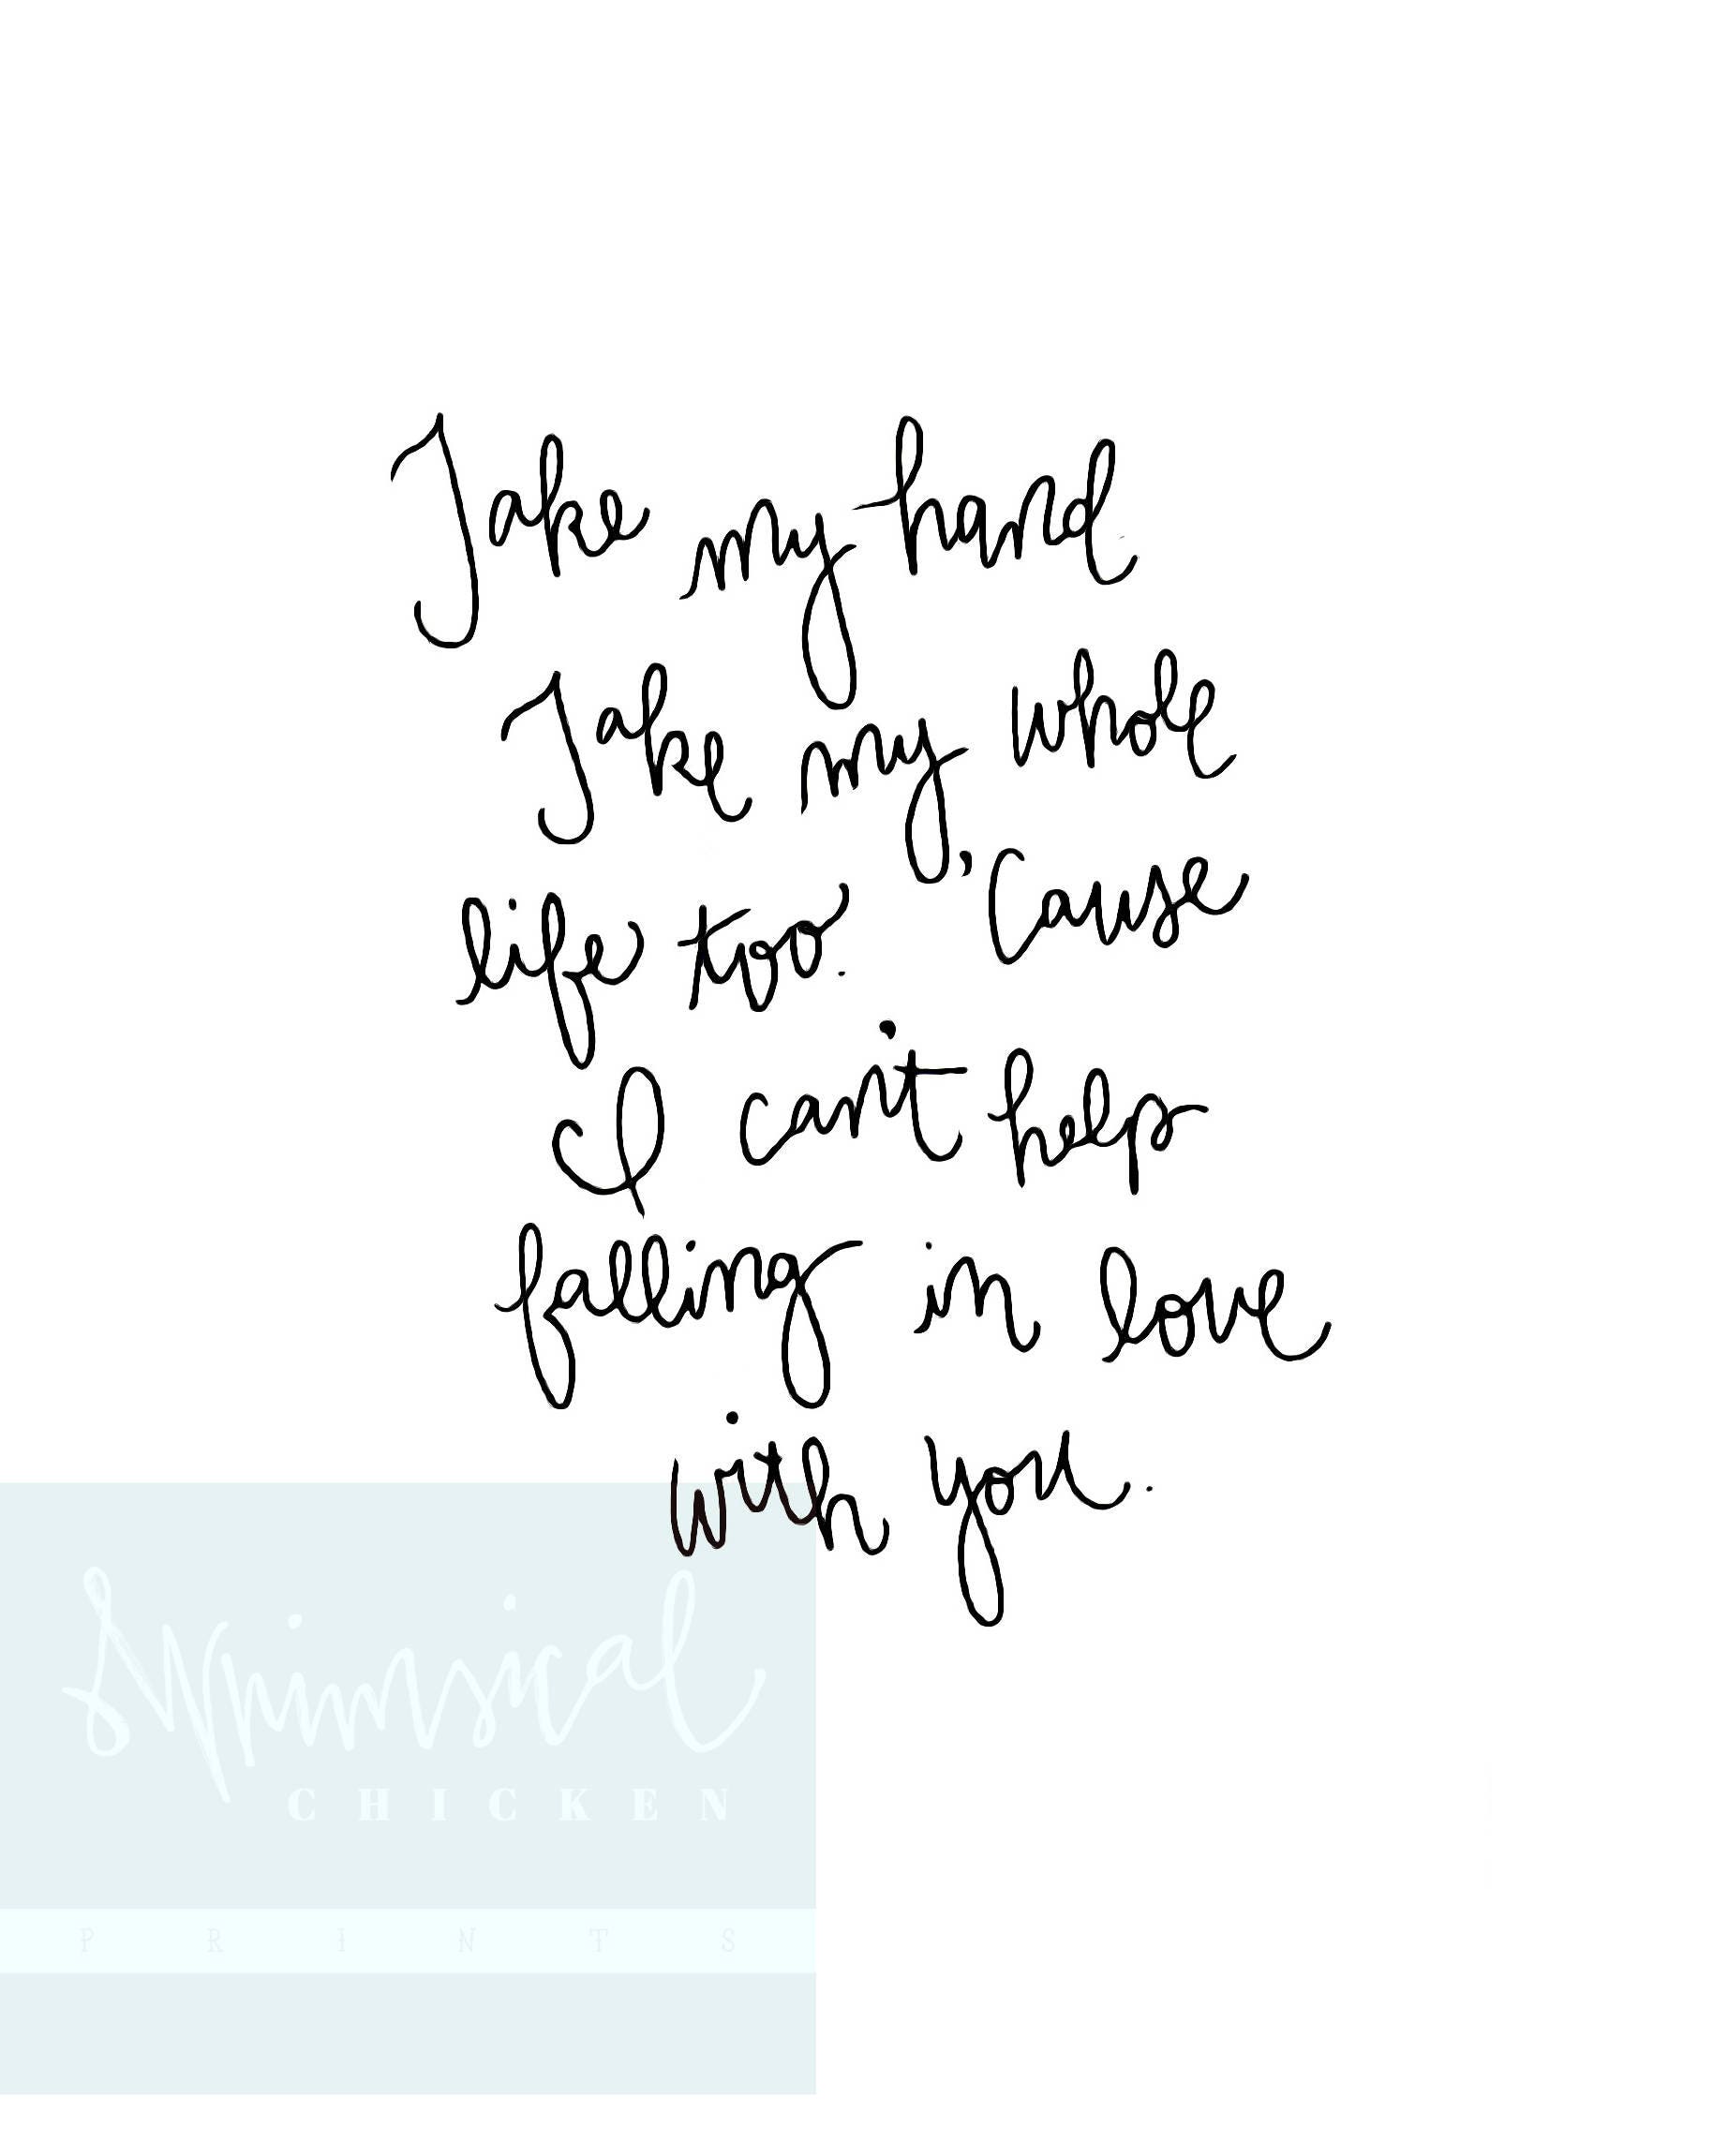 Take my hand.
Take my whole
life too. 'Cause
I can't help
falling in love
with you.
Whimsical
CHICKEN
PRINTS